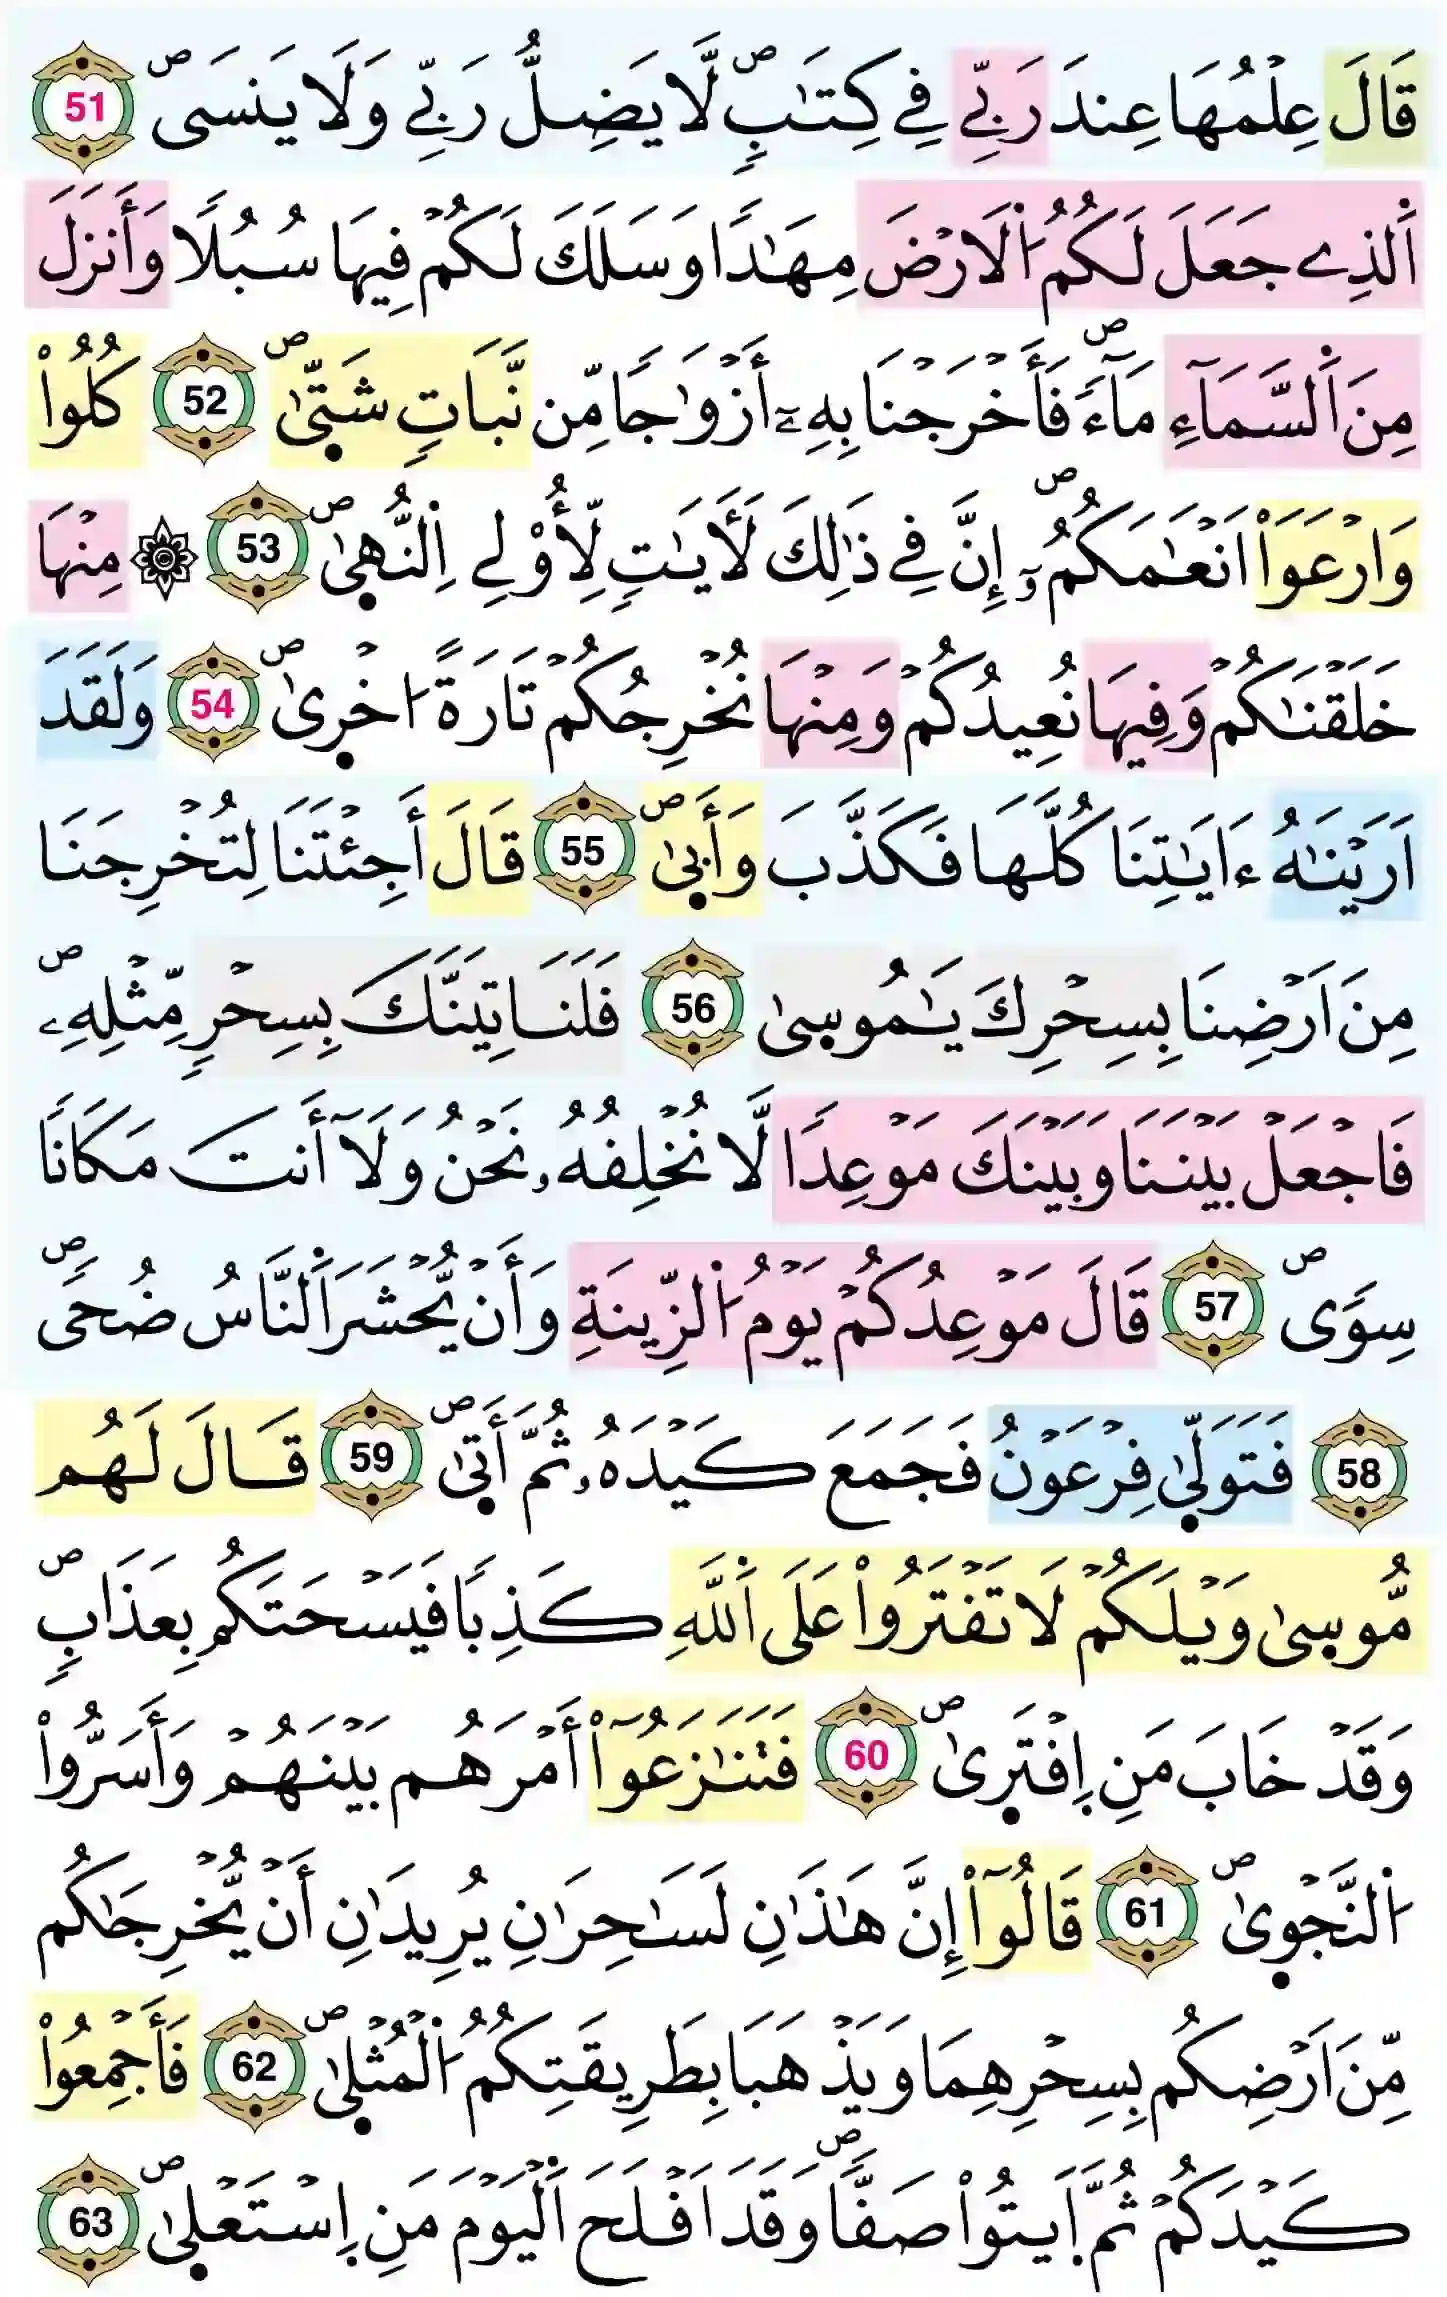 قَالَ عِلْمُهَا عِندَ رَبِّے فِے كِتَٰبٖۖ لَّا يَضِلُّ رَبِّے وَلَا يَنسَيۖ 51
اَ۬لذِے جَعَلَ لَكُمُ اُ۬لَارْضَ مِهَٰداٗ وَسَلَكَ لَكُمْ فِيهَا سُبُلاٗ وَأَنزَلَ
مِنَ اَ۬لسَّمَآءِ مَآءٗۖ فَأَخْرَجْنَا بِهِۦٓ أَزْوَٰجاٗ مِّن نَّبَاتٖ شَتّ۪يٰۖ 52 كُلُواْ
وَارْعَوَاْ اَنْعَٰمَكُمُۥٓۖ إِنَّ فِے ذَٰلِكَ لَأٓيَٰتٖ لِّأُوْلِے اِ۬لنُّه۪يٰۖ 53 ۞ مِنْهَا
خَلَقْنَٰكُمْ وَفِيهَا نُعِيدُكُمْ وَمِنْهَا نُخْرِجُكُمْ تَارَةً ا۟خْر۪يٰۖ 54 وَلَقَدَ
اَرَيْنَٰهُ ءَايَٰتِنَا كُلَّهَا فَكَذَّبَ وَأَب۪يٰۖ 55 قَالَ أَجِئْتَنَا لِتُخْرِجَنَا
مِنَ اَرْضِنَا بِسِحْرِكَ يَٰمُوس۪يٰ 56 فَلَنَاتِيَنَّكَ بِسِحْرٖ مِّثْلِهِۦۖ
فَاجْعَلْ بَيْنَنَا وَبَيْنَكَ مَوْعِداٗ لَّا نُخْلِفُهُۥ نَحْنُ وَلَآ أَنتَ مَكَاناٗ
سِوَيٗۖ 57 قَالَ مَوْعِدُكُمْ يَوْمُ اُ۬لزِّينَةِ وَأَنْ يُّحْشَرَ اَ۬لنَّاسُ ضُحَيٗۖ
58 فَتَوَلّ۪يٰ فِرْعَوْنُ فَجَمَعَ كَيْدَهُۥ ثُمَّ أَت۪يٰۖ 59 قَالَ لَهُم
مُّوس۪يٰ وَيْلَكُمْ لَا تَفْتَرُواْ عَلَي اَ۬للَّهِ كَذِباٗ فَيَسْحَتَكُم بِعَذَابٖۖ
وَقَدْ خَابَ مَنِ اِ۪فْتَر۪يٰۖ 60 فَتَنَٰزَعُوٓاْ أَمْرَهُم بَيْنَهُمْ وَأَسَرُّواْ
اُ۬لنَّجْو۪يٰۖ 61 قَالُوٓاْ إِنَّ هَٰذَٰنِ لَسَٰحِرَٰنِ يُرِيدَٰنِ أَنْ يُّخْرِجَٰكُم
مِّنَ اَرْضِكُم بِسِحْرِهِمَا وَيَذْهَبَا بِطَرِيقَتِكُمُ اُ۬لْمُثْل۪يٰۖ 62 فَأَجْمِعُواْ
كَيْدَكُمْ ثُمَّ اَ۪يتُواْ صَفّاٗۖ وَقَدَ اَفْلَحَ اَ۬لْيَوْمَ مَنِ اِ۪سْتَعْل۪يٰۖ 63